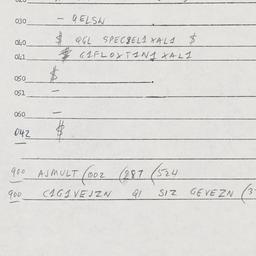 030 - QELSN
040 $ QGL SPECIEL1XAL1 $
041 $ C1FLOXT1N1XAL1
050 $
051 -
060 -
042 $
900 AJMULT (002 (287 (524
900 C1G1VEJZN QI SIZ GEVEZN (3